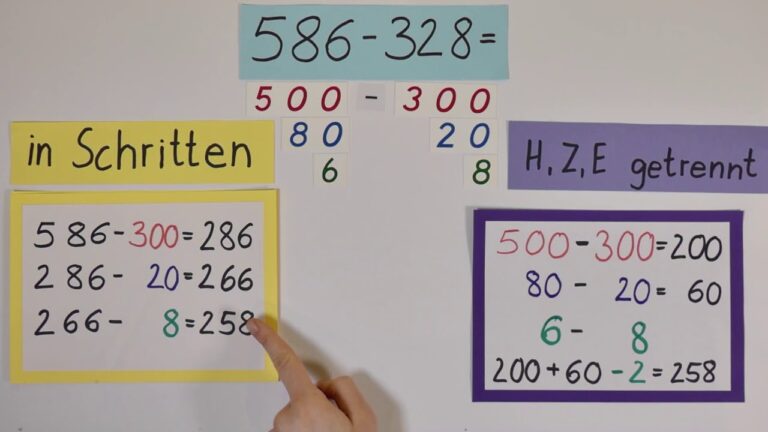 586-328=
500 - 300
80 20
6 8
in Schritten
586-300=286
286- 20=266
266- 8=258
H, Z, E getrennt
500-300=200
80 - 20= 60
6 - 8
200+60-2=258